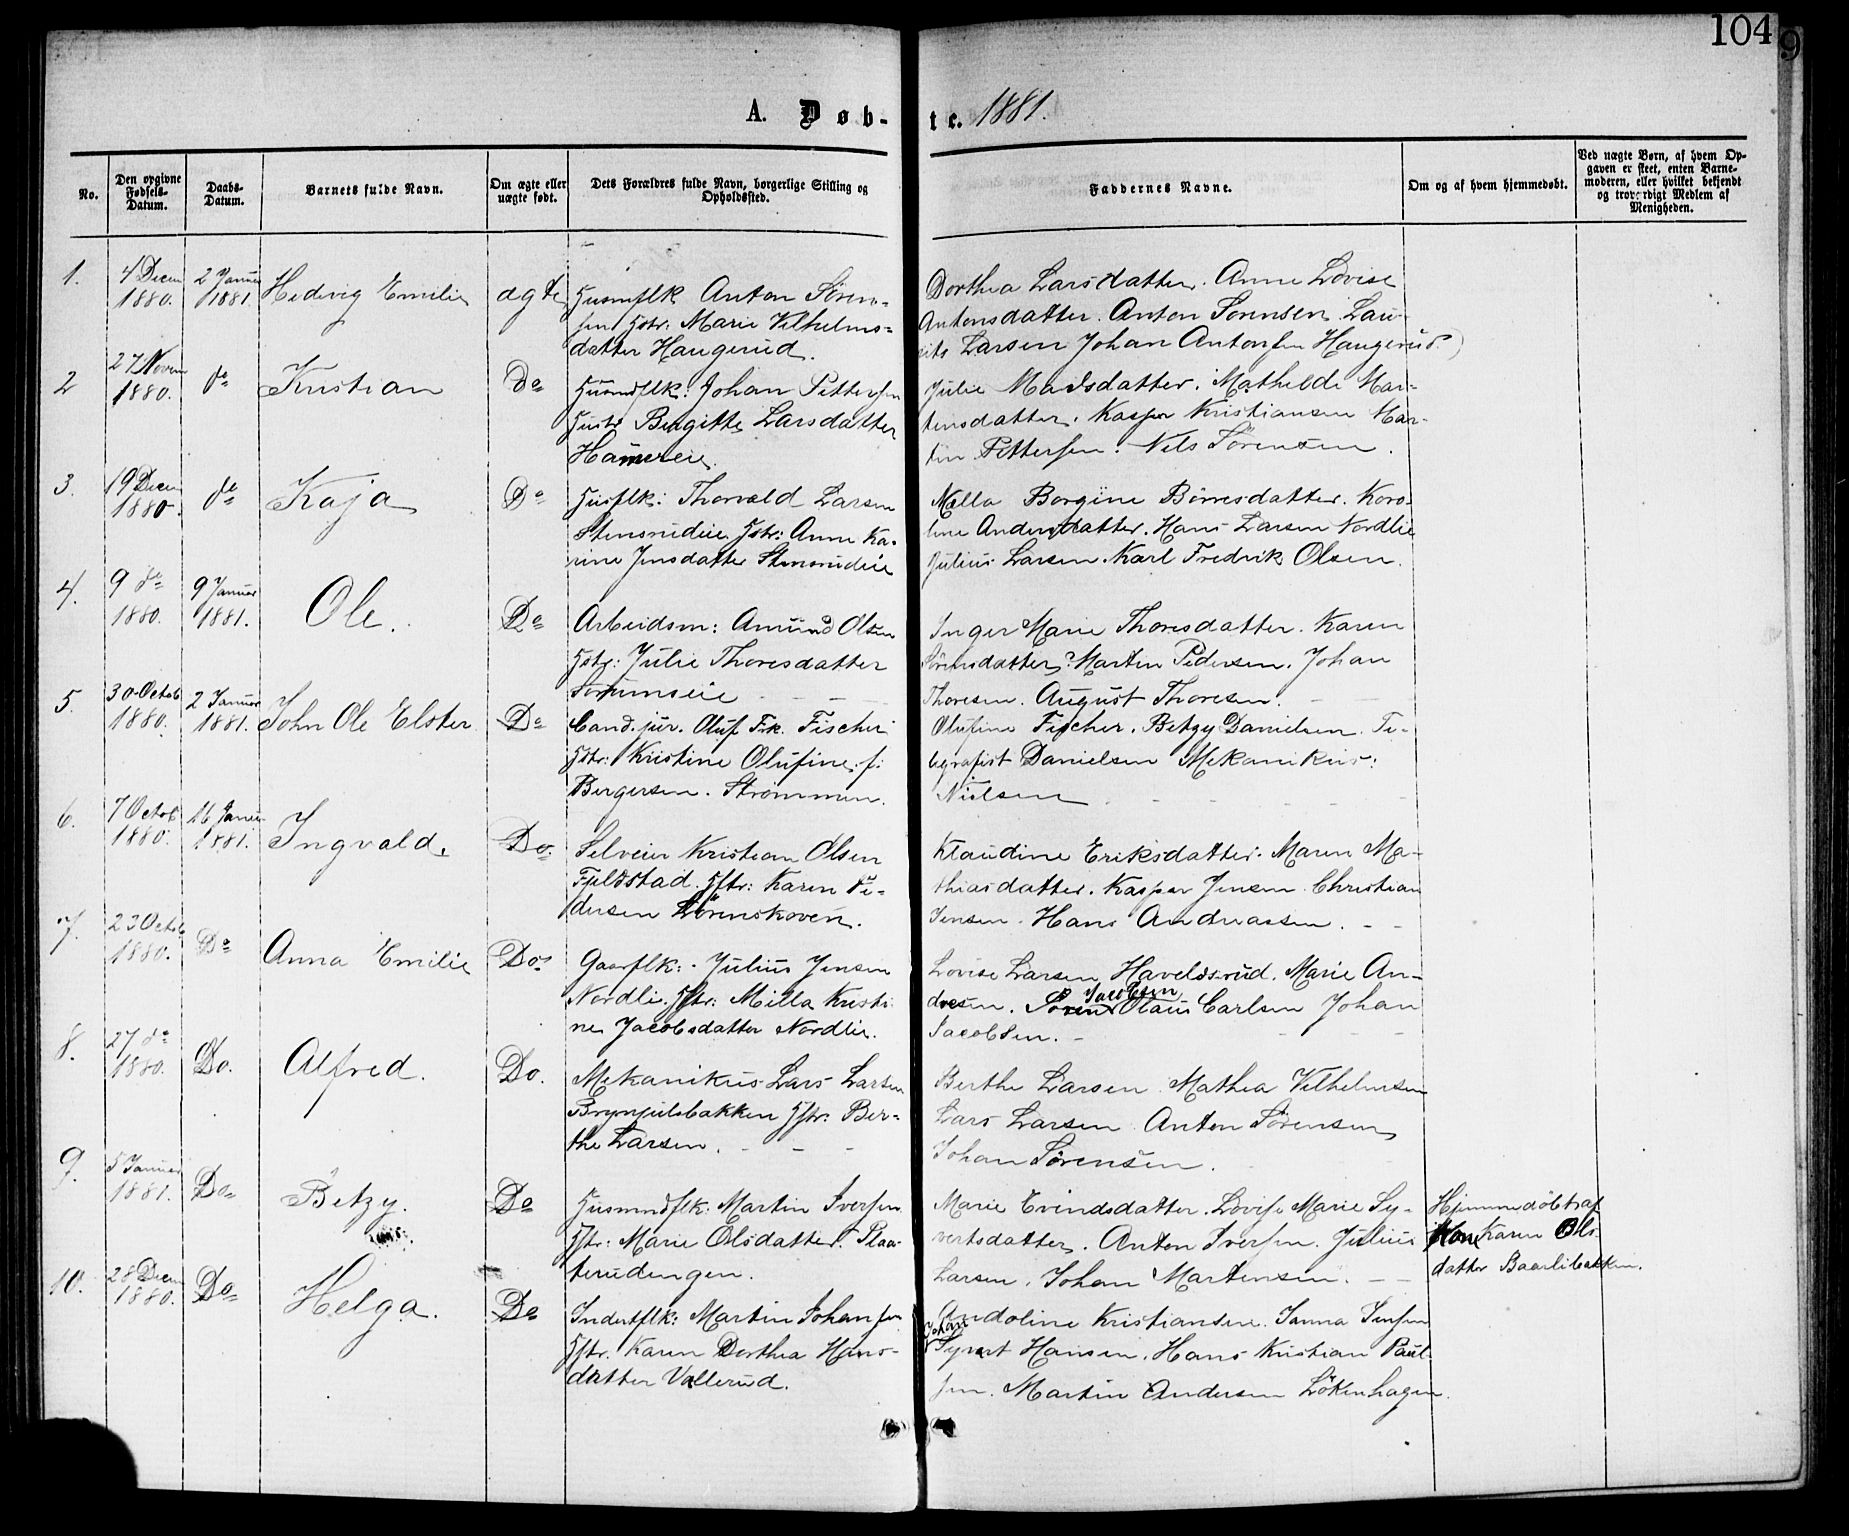 104
9
A. Døb-
te. 1881.
No.
Den opgivne Fødsels-Datum.
Daabs-Datum.
Barnets fulde Navn.
Om ægte eller uægte født.
Dets Forældres fulde Navn, borgerlige Stilling og Opholdssted.
Faddernes Navne.
Om og af hvem hjemmedøbt.
Ved uægte Børn, af hvem Opgaven er skeet, enten Barnemoderen, eller hvilket bekjendt og troværdigt Medlem af Menigheden.
1.
4 Decem
1880.
2 Januar
1881.
Hedevig Emilie
ægte
Husmflk Anton Søren-
sen Hstr: Marie Vilhelms-
datter Haugerud.
Dorthea Larsdatter. Anne Lovise
Antonsdatter. Anton Sørensen. Lau-
rits Larsen Johan Antonsen Haugerud.
2
27 Novem
1880.
do
Kristian
Do
Husmdflk: Johan Pettersen
Hustr Birgitte Larsdatter
Hammereie.
Julie Madsdatter. Mathilde Mar-
tinsdatter. Kasper Kristiansen Mar-
tin Pettersen. Nils Sørensen.
3.
19 Decem
1880.
do
Kaja
Do
Husflk: Thorvald Larsen
Stensrudeie Hstr: Anne Ka-
rine Jensdatter Stensrudeie
Mella Borgine Børresdatter. Karo-
line Andersdatter. Hans Larsen Nordlie
Julius Larsen. Karl Fredrik Olsen.
4.
9 do
1880.
9 Januar
1881.
Ole.
Do
Arbeidsm: Amund Olsen
Hstr: Julie Thoresdatter
Sørumseie
Inger Marie Thoresdatter. Karen
Sørensdatter. Martin Pedersen. Johan
Thoresen. August Thoresen.
5.
30 Octob
1880.
2 Januar
1881.
John Ole Elster
Do
Cand. jur. Oluf Fr. Fischer
Hstr: Kristine Olufine f:
Bergersen. Strømmen.
Olufine Fischer. Betzy Danielsen. Te-
legrafist Danielsen Mekanikus:
Nielsen
6.
7 Octob
1880.
16 Januar
1881.
Ingvald.
Do.
Selveier Kristian Olsen
Fjeldstad. Hstr: Karen Pe-
dersen Lørenskoven.
Klaudine Eriksdatter. Maren Ma-
thiasdatter. Kasper Jensen. Christian
Jensen. Hans Andreassen.
7.
23 Octob
1880.
Do
Anna Emilie
Do
Gaarflk: Julius Jensen
Nordlie. Hstr: Milla Kristi-
ne Jacobsdatter Nordlie.
Lovise Larsen Haveldsrud. Marie An-
Jacobsen
dresen. Søren Olaus Carlsen Johan
Jacobsen.
8.
27 do
1880.
Do.
Alfred.
Do.
Mekanikus Lars Larsen
Brynjulsbakken Hstr: Ber-
the Larsen.
Berthe Larsen. Mathea Vilhelmsen
Lars Larsen Anton Sørensen
Johan Sørensen.
9.
5 Januar
1881.
Do
Betzy.
Do
Husmndflk: Martin Iversen
Hstr: Marie Olsdatter. Plaa-
terudengen.
Marie Evindsdatter. Lovise Marie Sy-
vertsdatter. Anton Iversen. Julius
Larsen. Johan Martensen.
Hjemmedøbt af
Karen Ols-
datter Baarlibakken.
10.
28 Decem
1880.
Do
Helga.
Do
Inderstflk: Martin Johansen
Hstr. Karen Dorthea Hans-
datter Vallerud.
Andoline Kristiansen. Janna Jensen
Johan
Syvert Hansen. Hans Kristian Paul-
sen. Martin Andersen Løkenhagen.